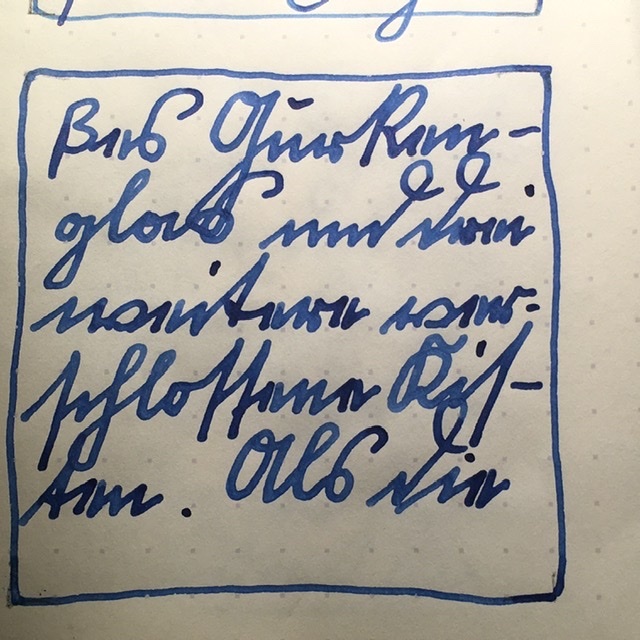 ßes Gurken-
glas und drei
weitere ver-
schlossene Kis-
ten. Als die